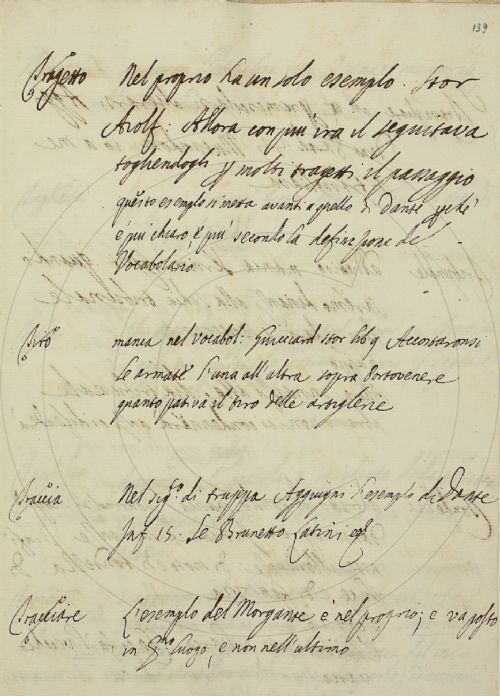 139
Tragetto Nel proprio ha un solo esempio. Stor
Aiolf: Allora con più ira il seguitava
togliendogli p molti tragetti il passaggio
questo esempio si metta avanti a quello di Dante pche
è più chiaro, e più secondo la definizione del
Vocabolario
Tiro manca nel vocabol: Guicciard stor lib 9 Accostaronsi
le armate l'una all'altra sopra Portovenere
quanto pativa il tiro delle artiglerie
Traccia Nel sigto di truppa Aggiungi l'esempio di Dante
Inf 15. Se Brunetto Latini
Tracciare L'esempio del Morgante è nel proprio; e va posto
in pmo luogo, e non nell'ultimo